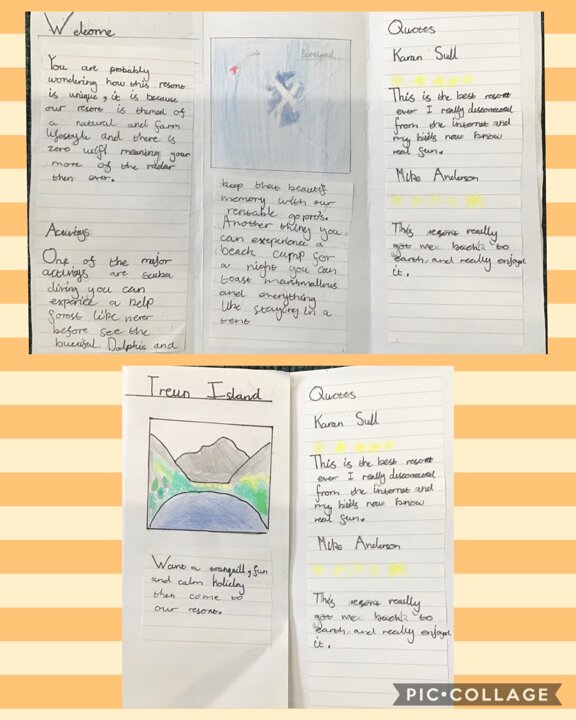 Welcome
You are probably
wondering how this resort
is unique, it is because
our resort is themed of
a natural and farm
lifestyle and there is
zero wifi meaning your
more of the radar
then ever.
Activitys
One of the major
activitys are scuba
diving you can
experice a kelp
forest like never
before see the
Dolphis and
Scotland
keep that beautif
memory with our
rentable gopros.
Another thing you
can exeperience a
beach camp for
a night you can
toast marshmallows
and everything
like staying in a
tent
Quotes
Karan Sull
This is the best resort
ever I really disconnected
from the internet and
my kids now know
real fun.
Mike Anderson
This resort really
got me back to
earth and really enjoyed
it.
Treun Island
Want a tranquill, fun
and calm holiday
then come to
our resort.
Quotes
Karan Sull
This is the best resort
ever I really disconnected
from the internet and
my kids now know
real fun.
Mike Anderson
This resort really
got me back to
earth and really enjoyed
it.
PIC•COLLAGE